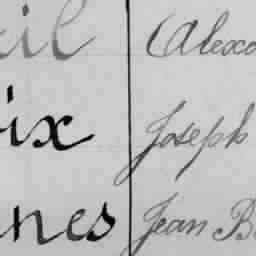 eil Alexa
ix Joseph
nes Jean B